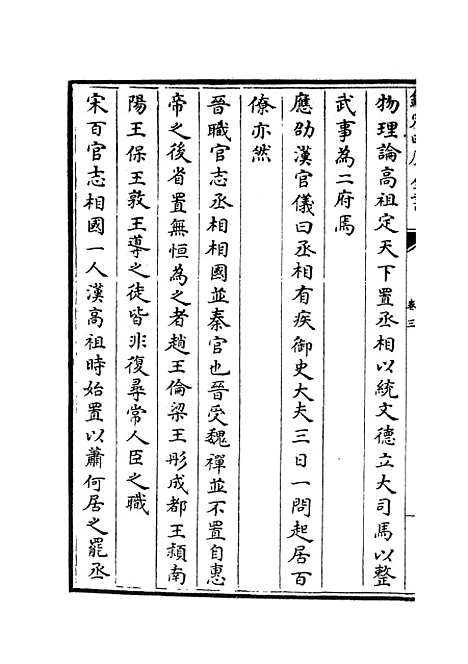 物理論髙祖定天下置丞相以統文德立大司馬以整
武事為二府焉
應劭漢官儀曰丞相有疾御史大夫三日一問起居百
僚亦然
晉職官志丞相相國並秦官也晉受魏禪並不置自惠
帝之後省置無恒為之者趙王倫梁王肜成都王頴南
陽王保王敦王導之徒皆非復尋常人臣之職
宋百官志相國一人漢髙祖時始置以蕭何居之罷丞
卷三